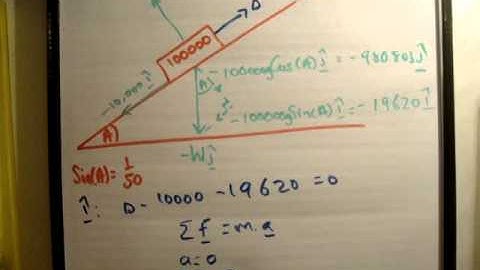 D
100000
-100000gCos(A)j = -980803j
-10,000 i
A
-100000gSin(A)i = -19620i
A
-Wj
Sin(A)= 1/50
i: D - 10000 - 19620 = 0
Σf = m.a
a=0